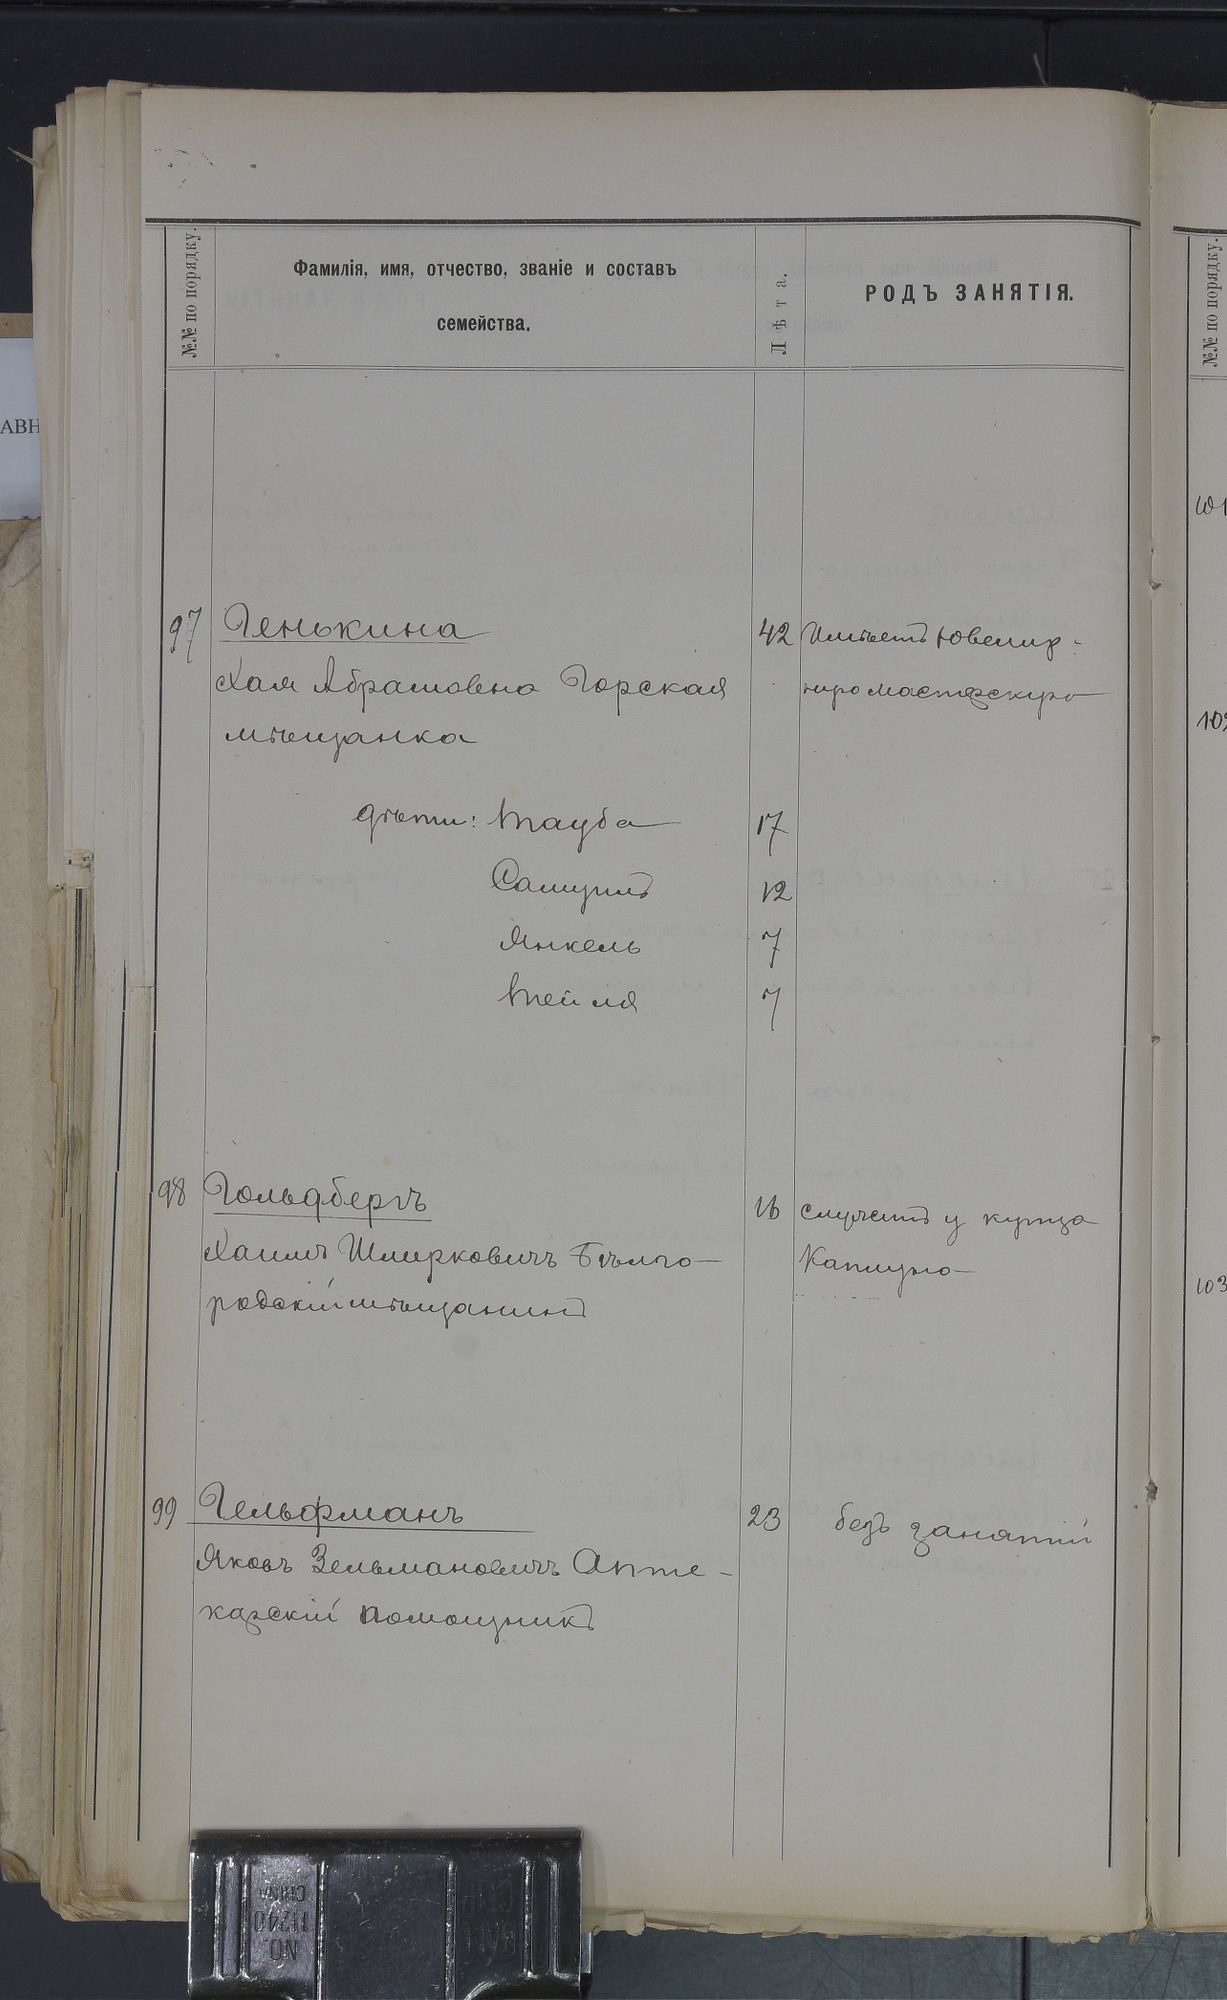 №№ по порядку.
Фамилія, имя, отчество, званіе и составъ
семейства.
Лѣта.
РОДЪ ЗАНЯТІЯ.
№№ по порядку.
АВН
97 Генькина 42 Имѣетъ ювелир-
Хая Абрамовна Горская ную мастерскую
мѣщанка
дѣти: Тауба 17
Самуилъ 12
Янкель 7
Тейля 7
98 Гольдбергъ 16 служитъ у купца
Хаимъ Шмерковичъ Бѣлго- Каплуна
родскій мѣщанинъ
99 Гельфманъ 23 безъ занятій
Яковъ Зельмановичъ Апте-
карскій помощникъ
101
102
103
NO.
11240
CHINA